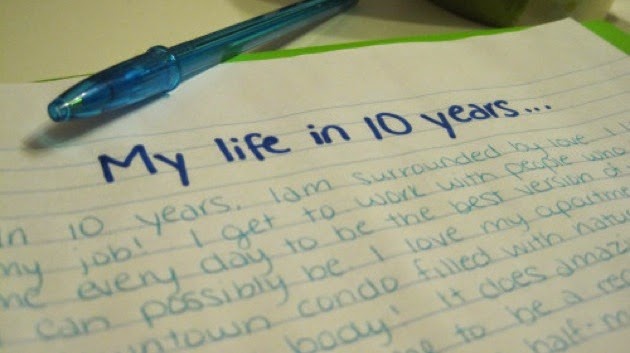 My life in 10 years...
In 10 years. I am surrounded by love. I
my job! I get to work with people who
me every day to be the best version of
I can possibly be. I love my apartment
downtown condo filled with natu
body! It does amazi
me to be a rec
half-m